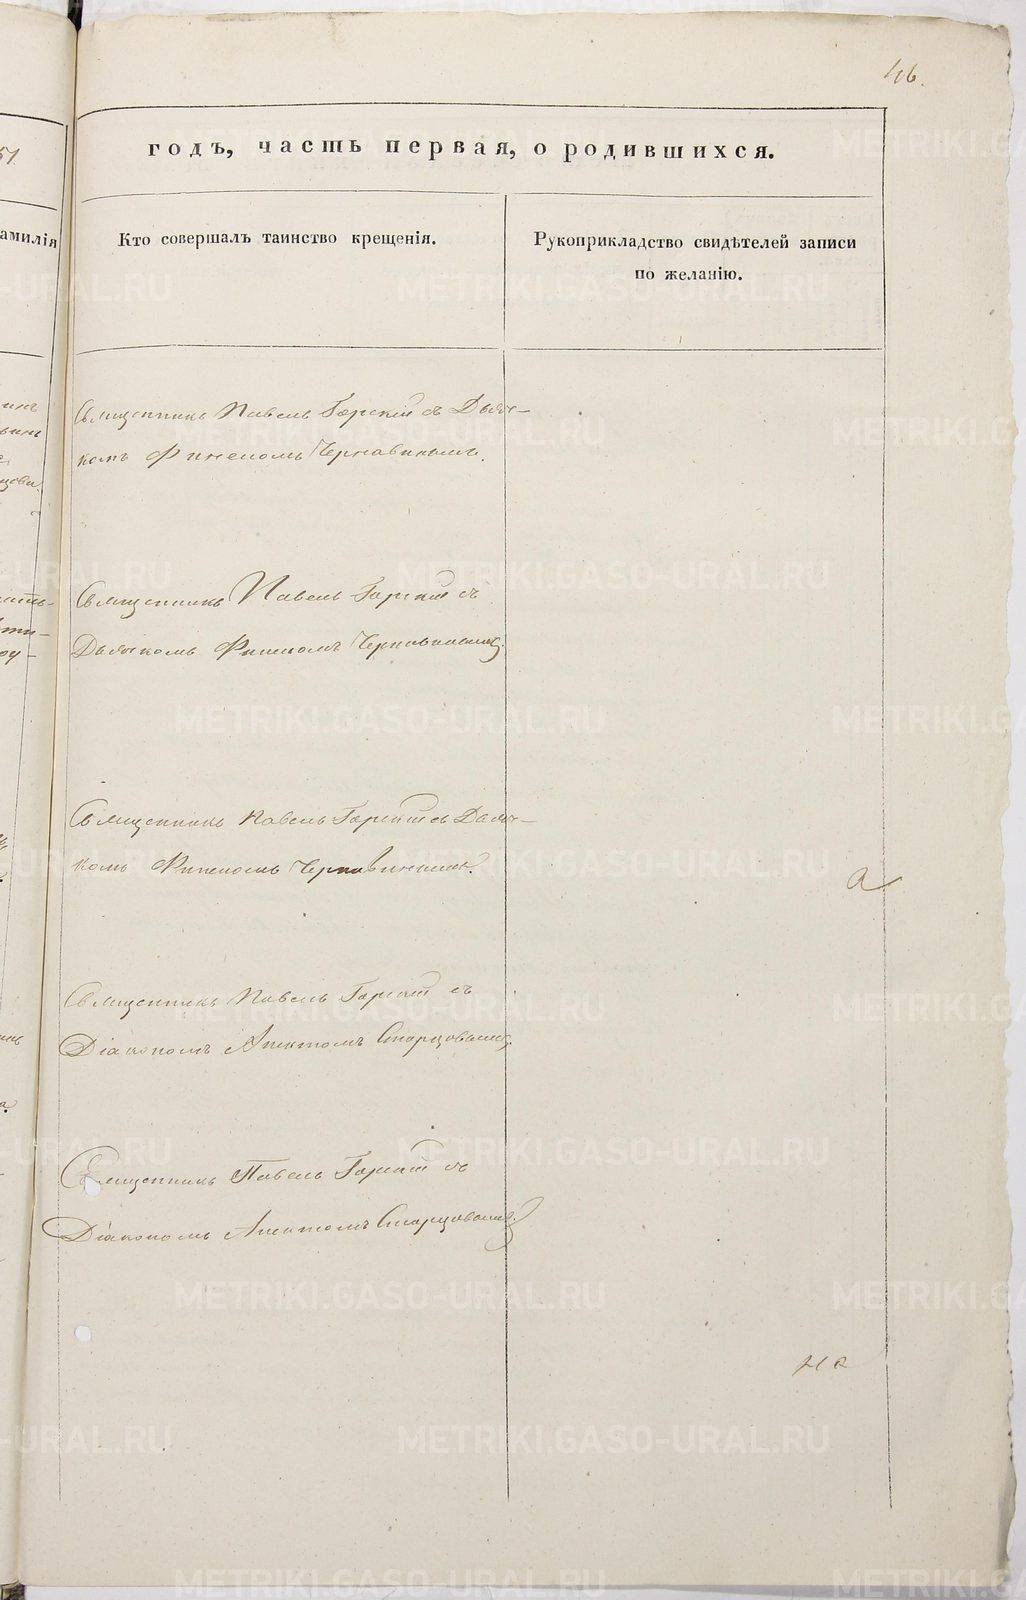 46.
годъ, часть первая, о родившихся.
51
амилія
Кто совершалъ таинство крещенія.
Рукоприкладство свидѣтелей записи
по желанію.
Священникъ Павелъ Горскій съ Дьяч-
комъ Финеномъ Чернавинымъ.
Священникъ Павелъ Горскій съ
Дьячкомъ Чернавинымъ.
Священникъ Павелъ Горскій съ Дьяч-
комъ Чернавинымъ.
Священникъ Павелъ Горскій съ
Діакономъ Старцовымъ.
Священникъ Павелъ Горскій съ
Діакономъ Старцовымъ.
METRIKI.GASO-URAL.RU